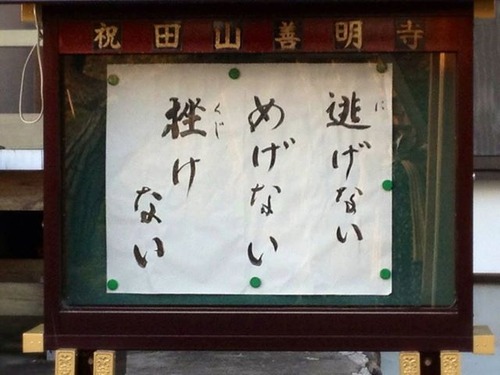 祝田山善明寺
逃げない
めげない
挫け
ない
に
くじ